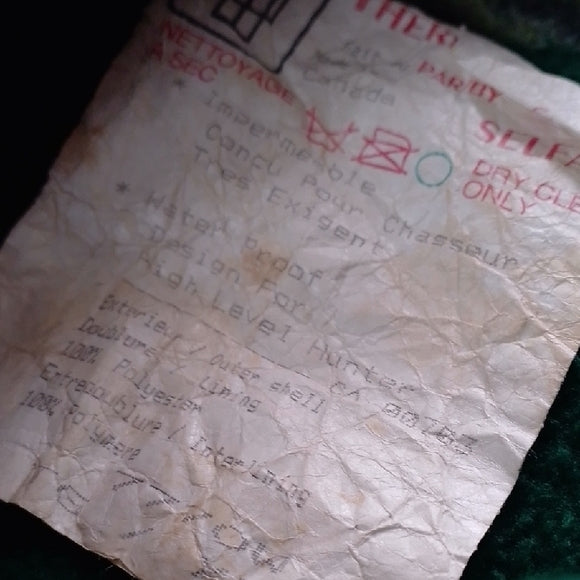 THER
PAR/BY
Canada
SELF
NETTOYAGE
A SEC
DRY CLE
ONLY
* Impermeable
Concu Pour Chasseur
Tres Exigent
* Water proof
Design For
High Level Hunter
Exterieur / Outer shell
Doublure / Lining
100% Polyester
Entredoublure / Interlining
100%